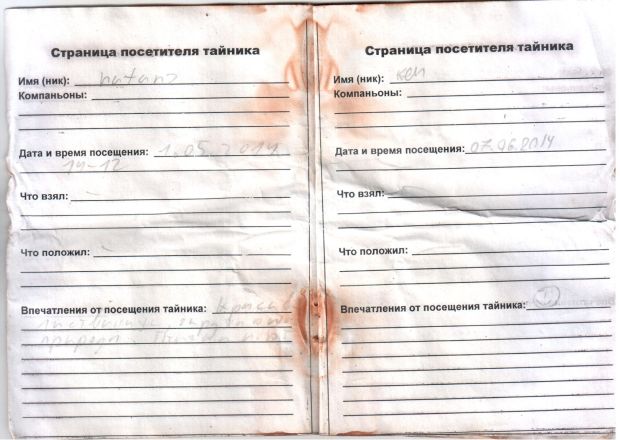 Страница посетителя тайника
Имя (ник): natans
Компаньоны:
Дата и время посещения: 1.05.2014
14-12
Что взял:
Что положил:
Впечатления от посещения тайника:
природы
Страница посетителя тайника
Имя (ник): кен
Компаньоны:
Дата и время посещения: 07.06.2014
Что взял:
Что положил:
Впечатления от посещения тайника: